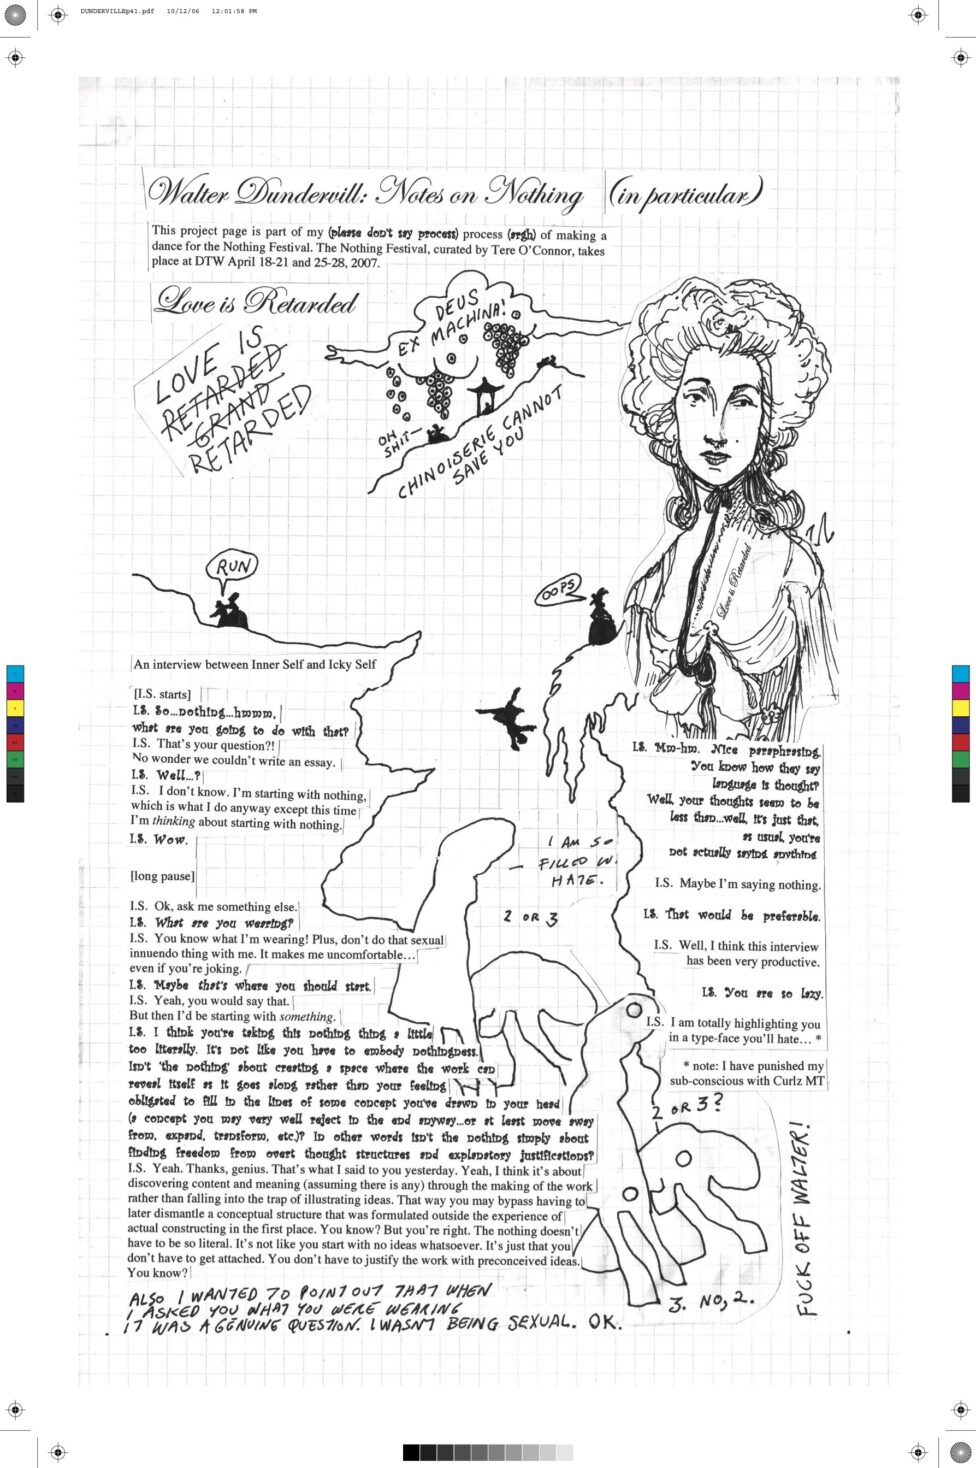 DUNDERVILLEp41.pdf 10/12/06 12:01:58 PM
Walter Dundervill: Notes on Nothing (in particular)
This project page is part of my (please don't say process) process (argh) of making a
dance for the Nothing Festival. The Nothing Festival, curated by Tere O'Connor, takes
place at DTW April 18-21 and 25-28, 2007.
Love is Retarded
LOVE IS
RETARDED
GRAND
RETARDED
DEUS
EX MACHINA!
OH
SHIT—
CHINOISERIE CANNOT
SAVE YOU
Love is Retarded
RUN
OOPS
An interview between Inner Self and Icky Self
[I.S. starts]
I.S. So...nothing...hmmm,
what are you going to do with that?
I.S. That's your question?!
No wonder we couldn't write an essay.
I.S. Well...?
I.S. I don't know. I'm starting with nothing,
which is what I do anyway except this time
I'm thinking about starting with nothing.
I.S. Wow.
[long pause]
I.S. Ok, ask me something else.
I.S. What are you wearing?
I.S. You know what I'm wearing! Plus, don't do that sexual
innuendo thing with me. It makes me uncomfortable…
even if you're joking.
I.S. Maybe that's where you should start.
I.S. Yeah, you would say that.
But then I'd be starting with something.
I.S. I think you're taking this nothing thing a little
too literally. It's not like you have to embody nothingness.
Isn't 'the nothing' about creating a space where the work can
reveal itself as it goes along rather than your feeling
obligated to fill in the lines of some concept you've drawn in your head
(a concept you may very well reject in the end anyway...or at least move away
from, expand, transform, etc.)? In other words isn't the nothing simply about
finding freedom from overt thought structures and explanatory justifications?
I.S. Yeah. Thanks, genius. That's what I said to you yesterday. Yeah, I think it's about
discovering content and meaning (assuming there is any) through the making of the work
rather than falling into the trap of illustrating ideas. That way you may bypass having to
later dismantle a conceptual structure that was formulated outside the experience of
actual constructing in the first place. You know? But you're right. The nothing doesn't
have to be so literal. It's not like you start with no ideas whatsoever. It's just that you
don't have to get attached. You don't have to justify the work with preconceived ideas.
You know?
ALSO I WANTED TO POINT OUT THAT WHEN
I ASKED YOU WHAT YOU WERE WEARING
IT WAS A GENUINE QUESTION. I WASN'T BEING SEXUAL. OK.
I AM SO
— FILLED W.
HATE.
2 OR 3
I.S. Mm-hm. Nice paraphrasing.
You know how they say
language is thought?
Well, your thoughts seem to be
less than...well, it's just that,
as usual, you're
not actually saying anything
I.S. Maybe I'm saying nothing.
I.S. That would be preferable.
I.S. Well, I think this interview
has been very productive.
I.S. You are so lazy.
I.S. I am totally highlighting you
in a type-face you'll hate… *
* note: I have punished my
sub-conscious with Curlz MT
2 OR 3?
3. NO, 2.
FUCK OFF WALTER!